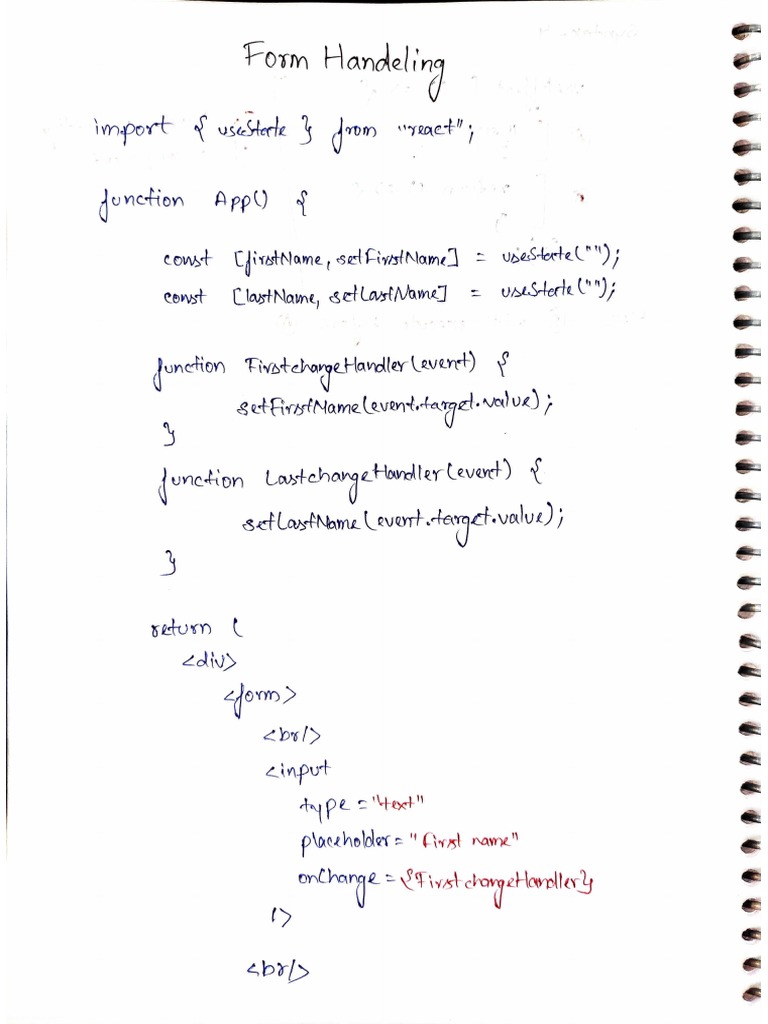 Form Handeling
import { useState } from "react";
function App() {
const [firstName, setFirstName] = useState("");
const [lastName, setLastName] = useState("");
function FirstchangeHandler(event) {
setFirstName(event.target.value);
}
function LastchangeHandler(event) {
setLastName(event.target.value);
}
return (
<div>
<form>
<br/>
<input
type = "text"
placeholder = "first name"
onChange = {FirstchangeHandler}
/>
<br/>